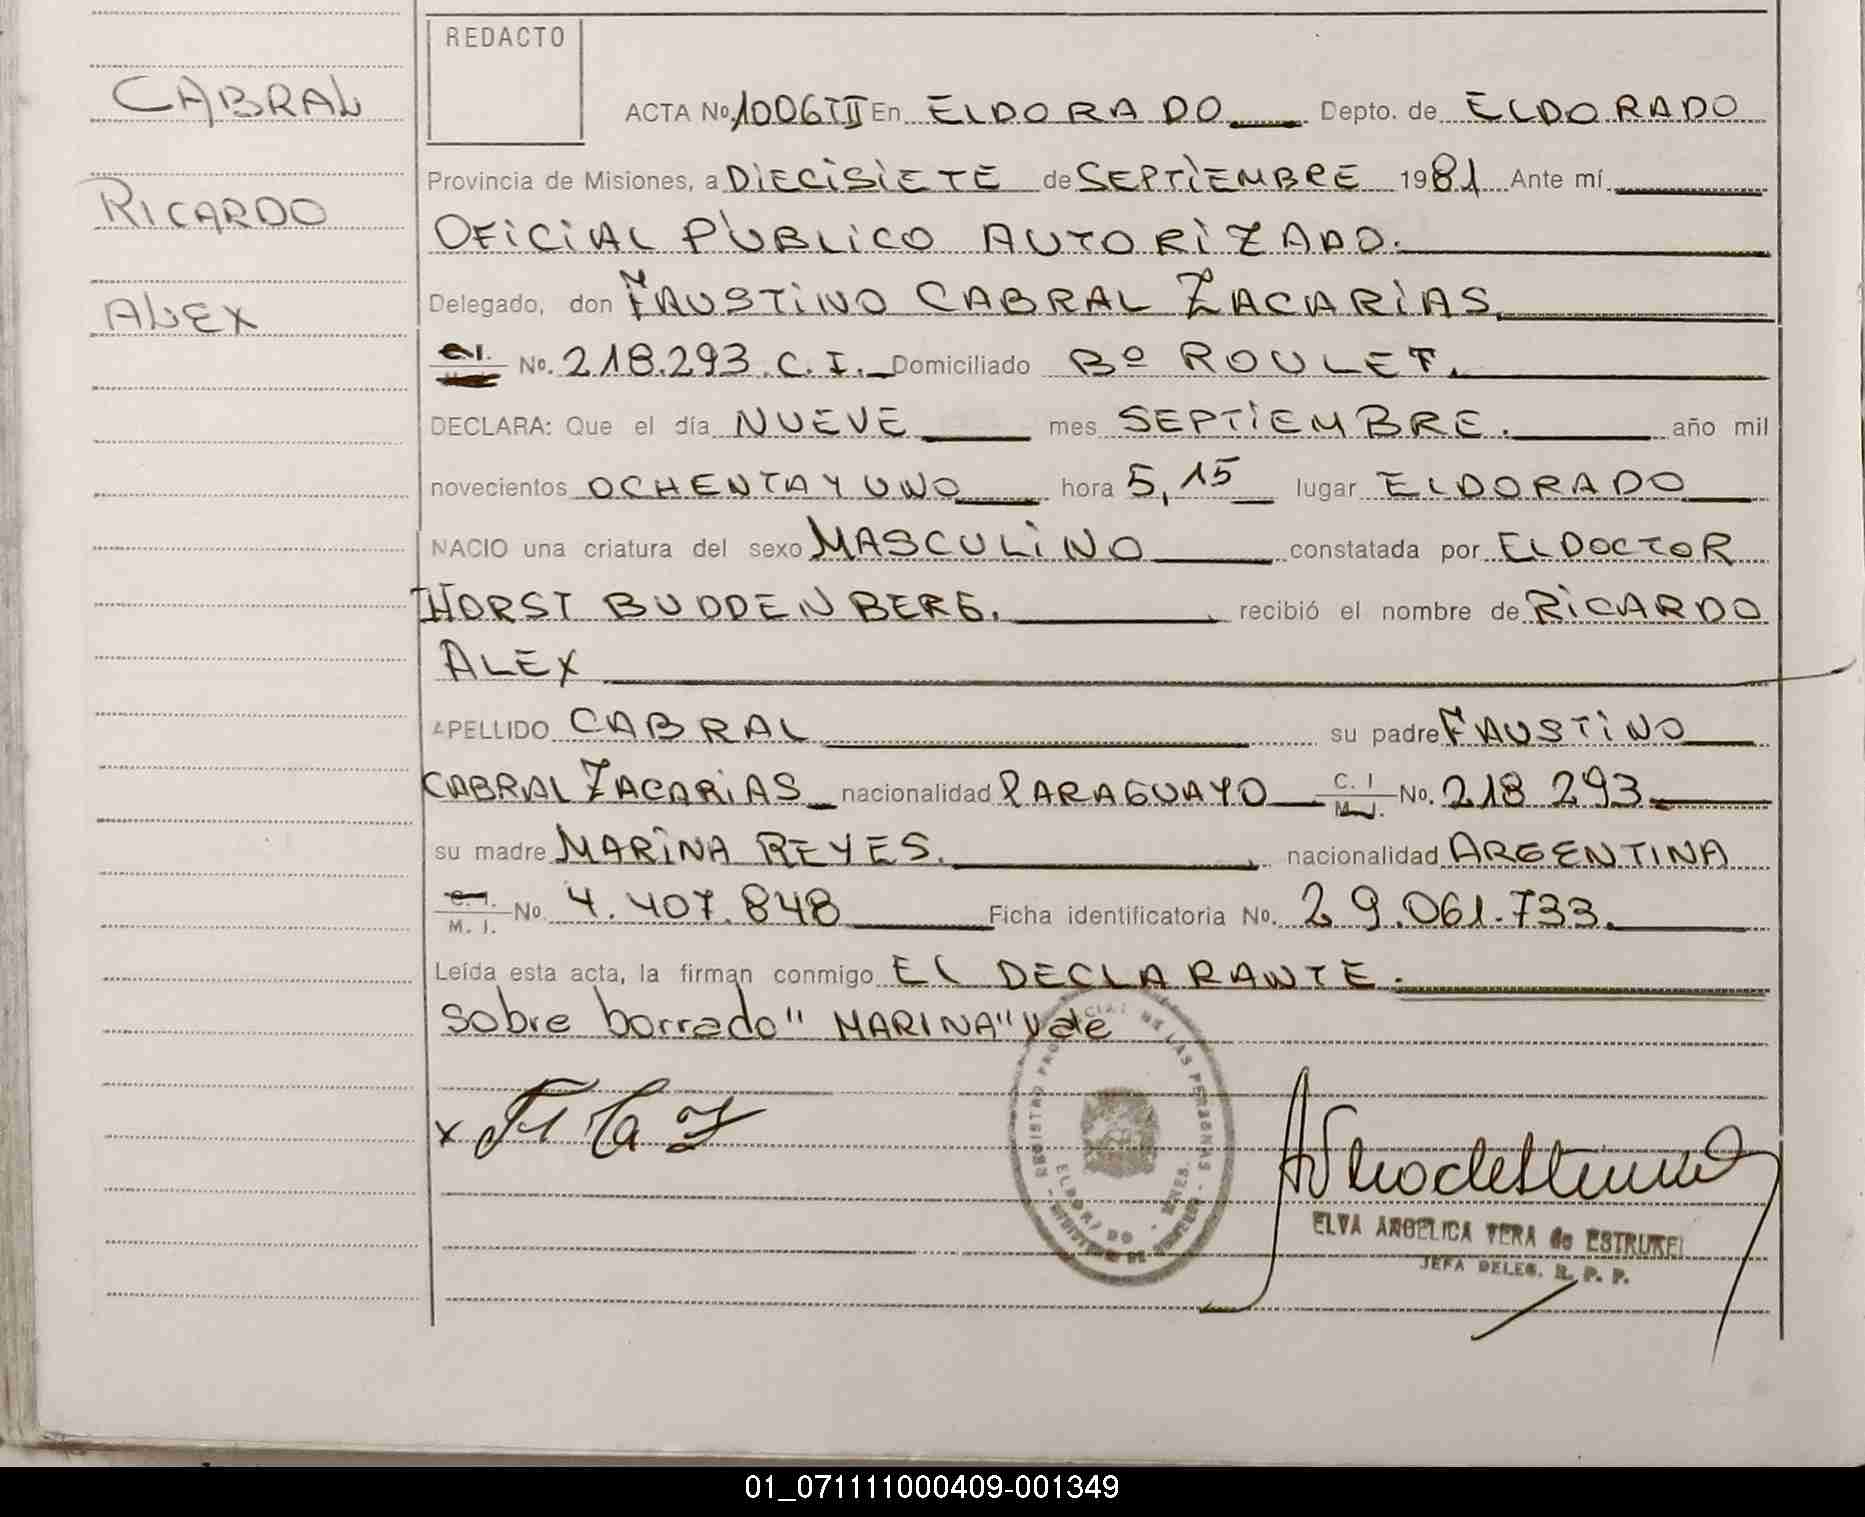 CABRAL
RICARDO
ALEX
REDACTO
ACTA No. 1006 TII En ELDORADO Depto. de ELDORADO
Provincia de Misiones, a DIECISIETE de SEPTIEMBRE 1981 Ante mí
OFICIAL PUBLICO AUTORIZADO.
Delegado, don FAUSTINO CABRAL ZACARIAS,
No. 218.293 C. I. Domiciliado Bº ROULET.
DECLARA: Que el día NUEVE mes SEPTIEMBRE. año mil
novecientos OCHENTA Y UNO hora 5,15 lugar ELDORADO
NACIO una criatura del sexo MASCULINO constatada por EL DOCTOR
HORST BUDDENBERG. recibió el nombre de RICARDO
ALEX
APELLIDO CABRAL su padre FAUSTINO
CABRAL ZACARIAS nacionalidad PARAGUAYO C. I M. I. No. 218 293
su madre MARINA REYES. nacionalidad ARGENTINA
C. I. M. I. No. 4.407.848 Ficha identificatoria No. 29.061.733.
Leída esta acta, la firman conmigo EL DECLARANTE.
Sobre borrado "MARINA" Vale
x F C Z
REGISTRO PROVINCIAL DE LAS PERSONAS
ELDORADO - MNES.
MINISTERIO DE GOBIERNO
ELVA ANGELICA VERA de ESTRUKEL
JEFA DELEG. R. P. P.
01_071111000409-001349